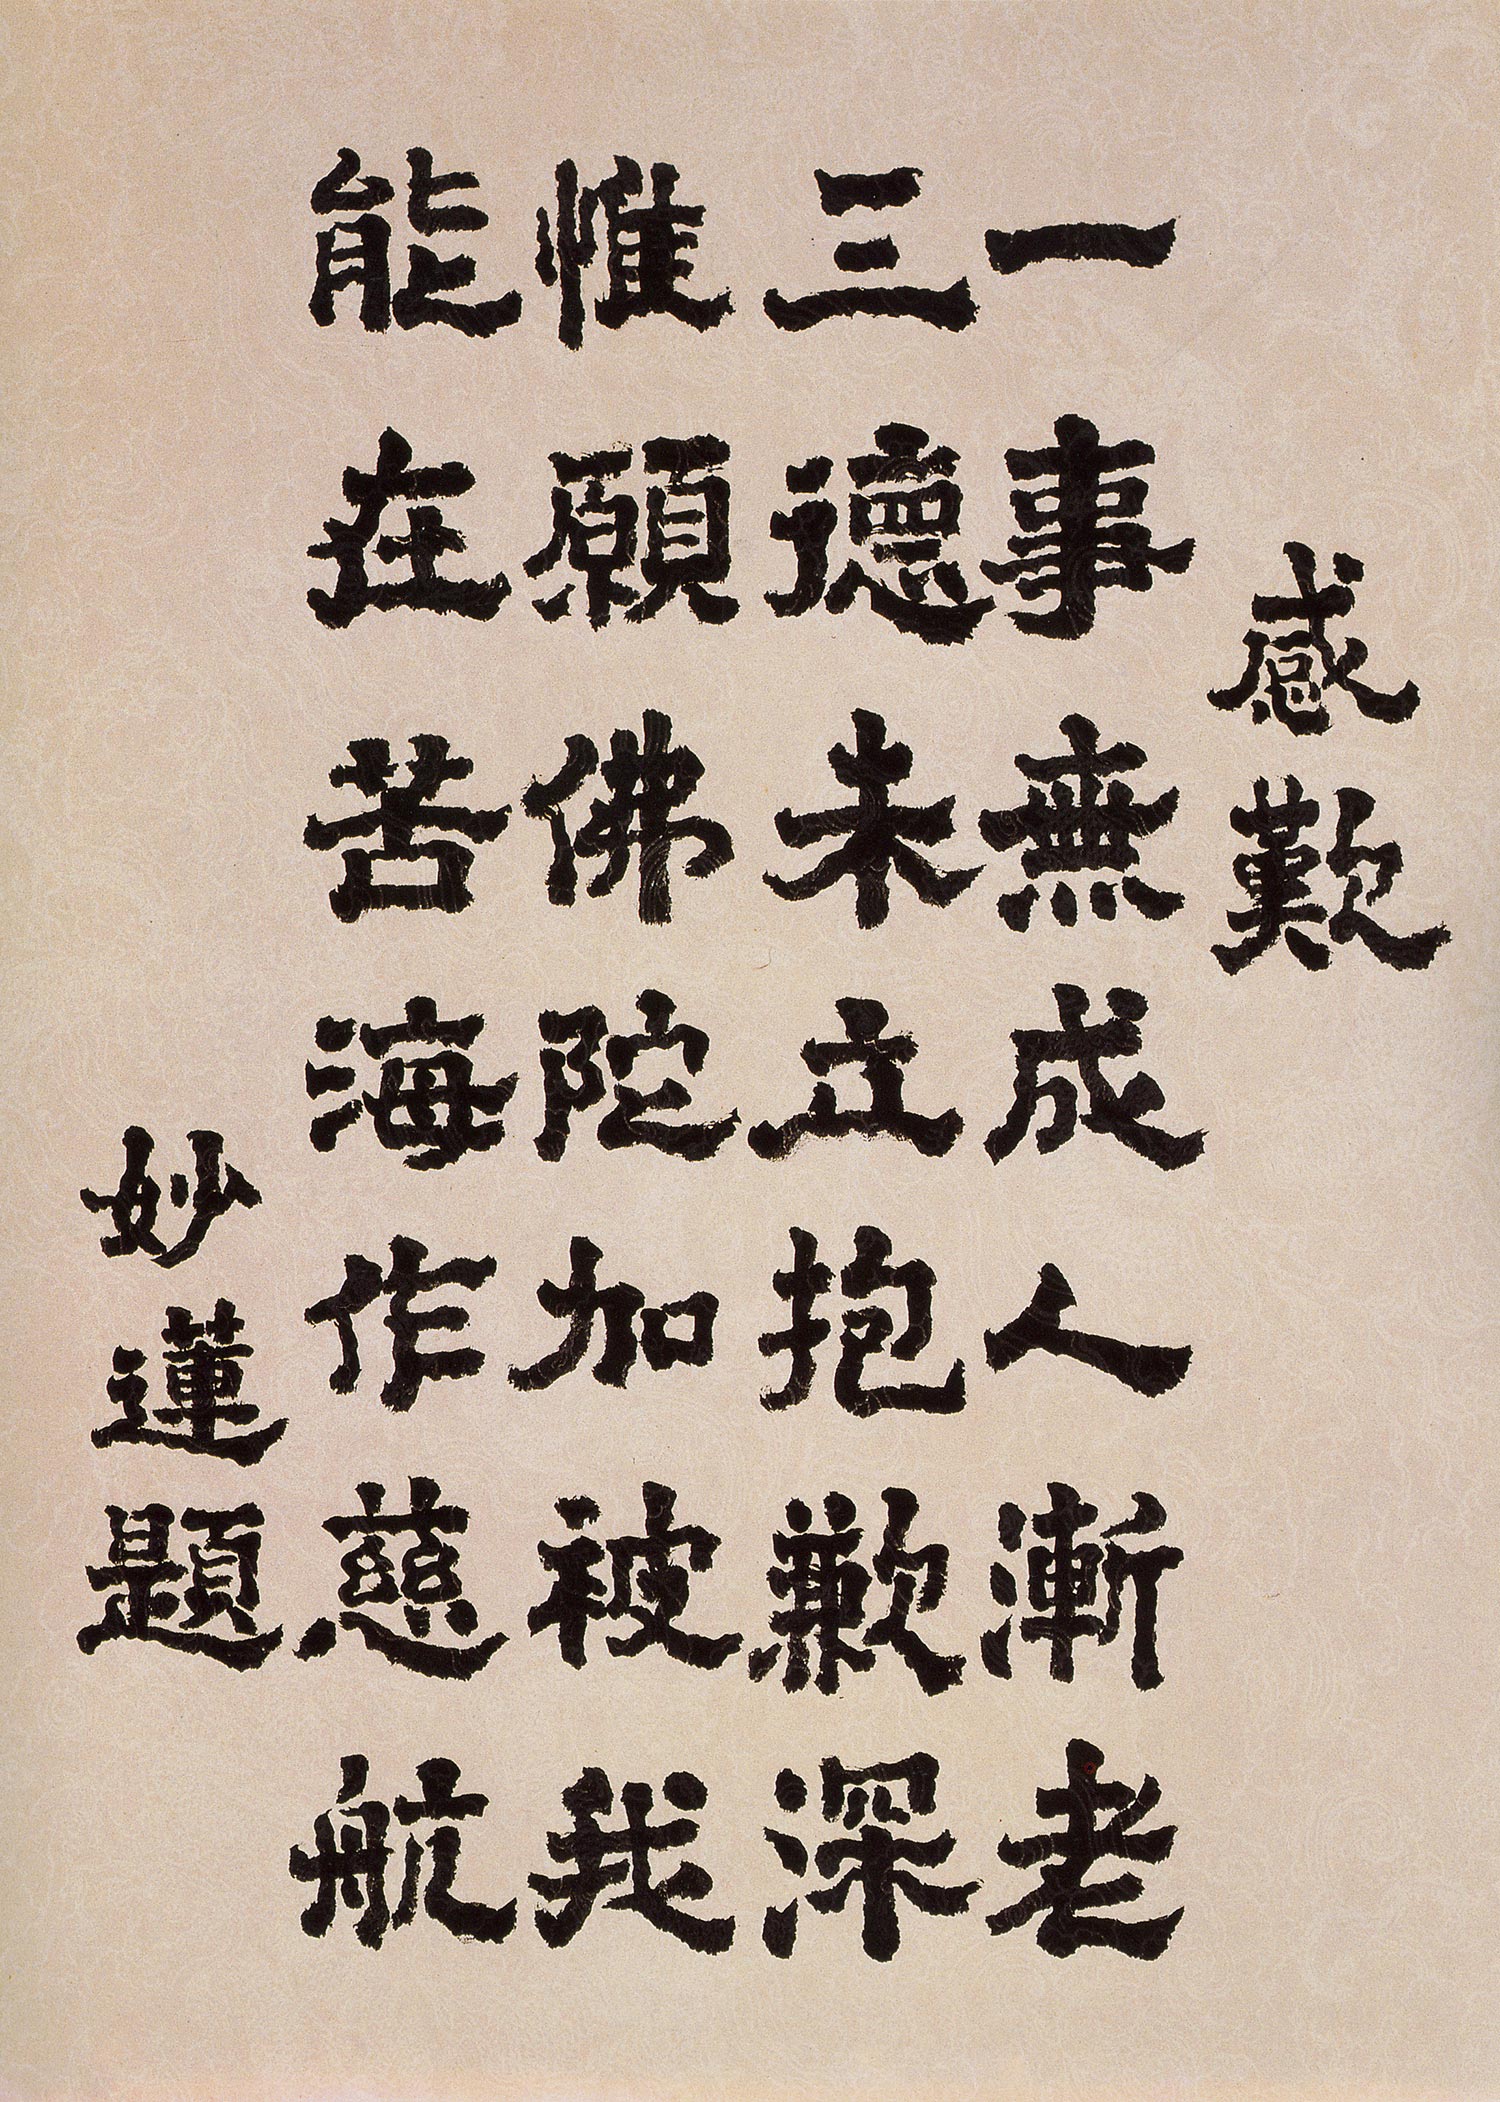 感歎
一事無成人漸老
三德未立抱歉深
惟願佛陀加被我
能在苦海作慈航
妙蓮題